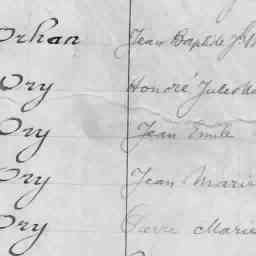 Orhan Jean Baptiste J.
Ory Honoré Jules
Ory Jean Emile
Ory Jean Marie
Ory Pierre Marie